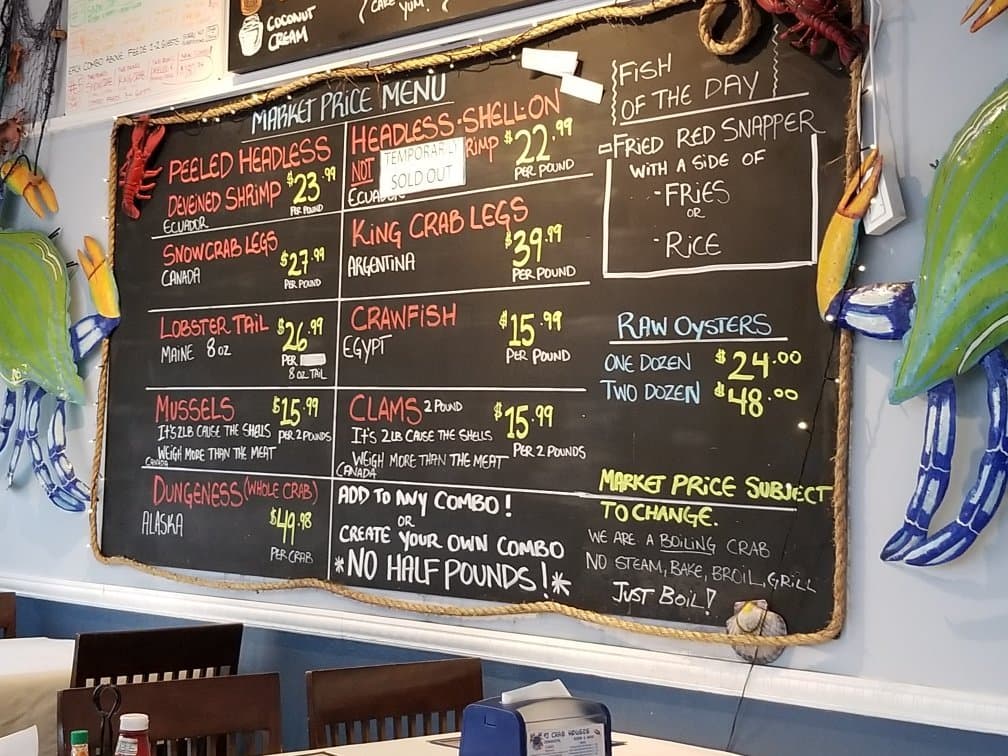 COCONUT
CREAM
YUM!
MARKET PRICE MENU
PEELED HEADLESS
DEVEINED SHRIMP $23.99
PER POUND
ECUADOR
HEADLESS·SHELL-ON
NOT TEMPORARILY SOLD OUT RIMP $22.99
PER POUND
ECUADOR
SNOWCRAB LEGS
CANADA $27.99
PER POUND
KING CRAB LEGS
ARGENTINA $39.99
PER POUND
LOBSTER TAIL $26.99
MAINE 8 OZ PER
8 OZ TAIL
CRAWFISH $15.99
EGYPT PER POUND
MUSSELS $15.99
IT'S 2LB CAUSE THE SHELLS PER 2 POUNDS
WEIGH MORE THAN THE MEAT
CANADA
CLAMS 2 POUND $15.99
IT'S 2 LB CAUSE THE SHELLS PER 2 POUNDS
WEIGH MORE THAN THE MEAT
CANADA
DUNGENESS (WHOLE CRAB)
ALASKA $49.98
PER CRAB
ADD TO ANY COMBO!
OR
CREATE YOUR OWN COMBO
*NO HALF POUNDS!*
FISH
OF THE DAY
-FRIED RED SNAPPER
WITH A SIDE OF
-FRIES
OR
-RICE
RAW OYSTERS
ONE DOZEN $24.00
TWO DOZEN $48.00
MARKET PRICE SUBJECT
TO CHANGE.
WE ARE A BOILING CRAB
NO STEAM, BAKE, BROIL, GRILL
JUST BOIL!